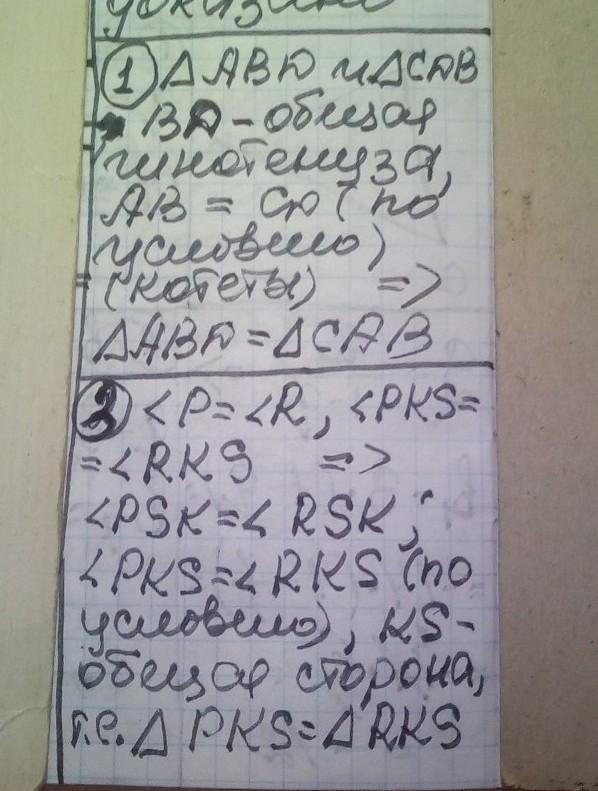 указано
① ΔABD и ΔCDB
BD - общая
гипотенуза,
AB = CD (по
условию)
(катеты) =>
ΔABD = ΔCDB
② <P=<R, <PKS=
=<RKS =>
<PSK=<RSK;
<PKS=<RKS (по
условию), KS-
общая сторона,
т.е. Δ PKS=Δ RKS